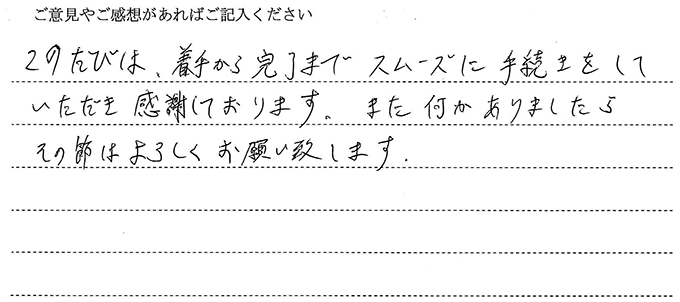 ご意見やご感想があればご記入ください
このたびは、着手から完了までスムーズに手続きをして
いただき感謝しております。また何かありましたら
その節はよろしくお願い致します.